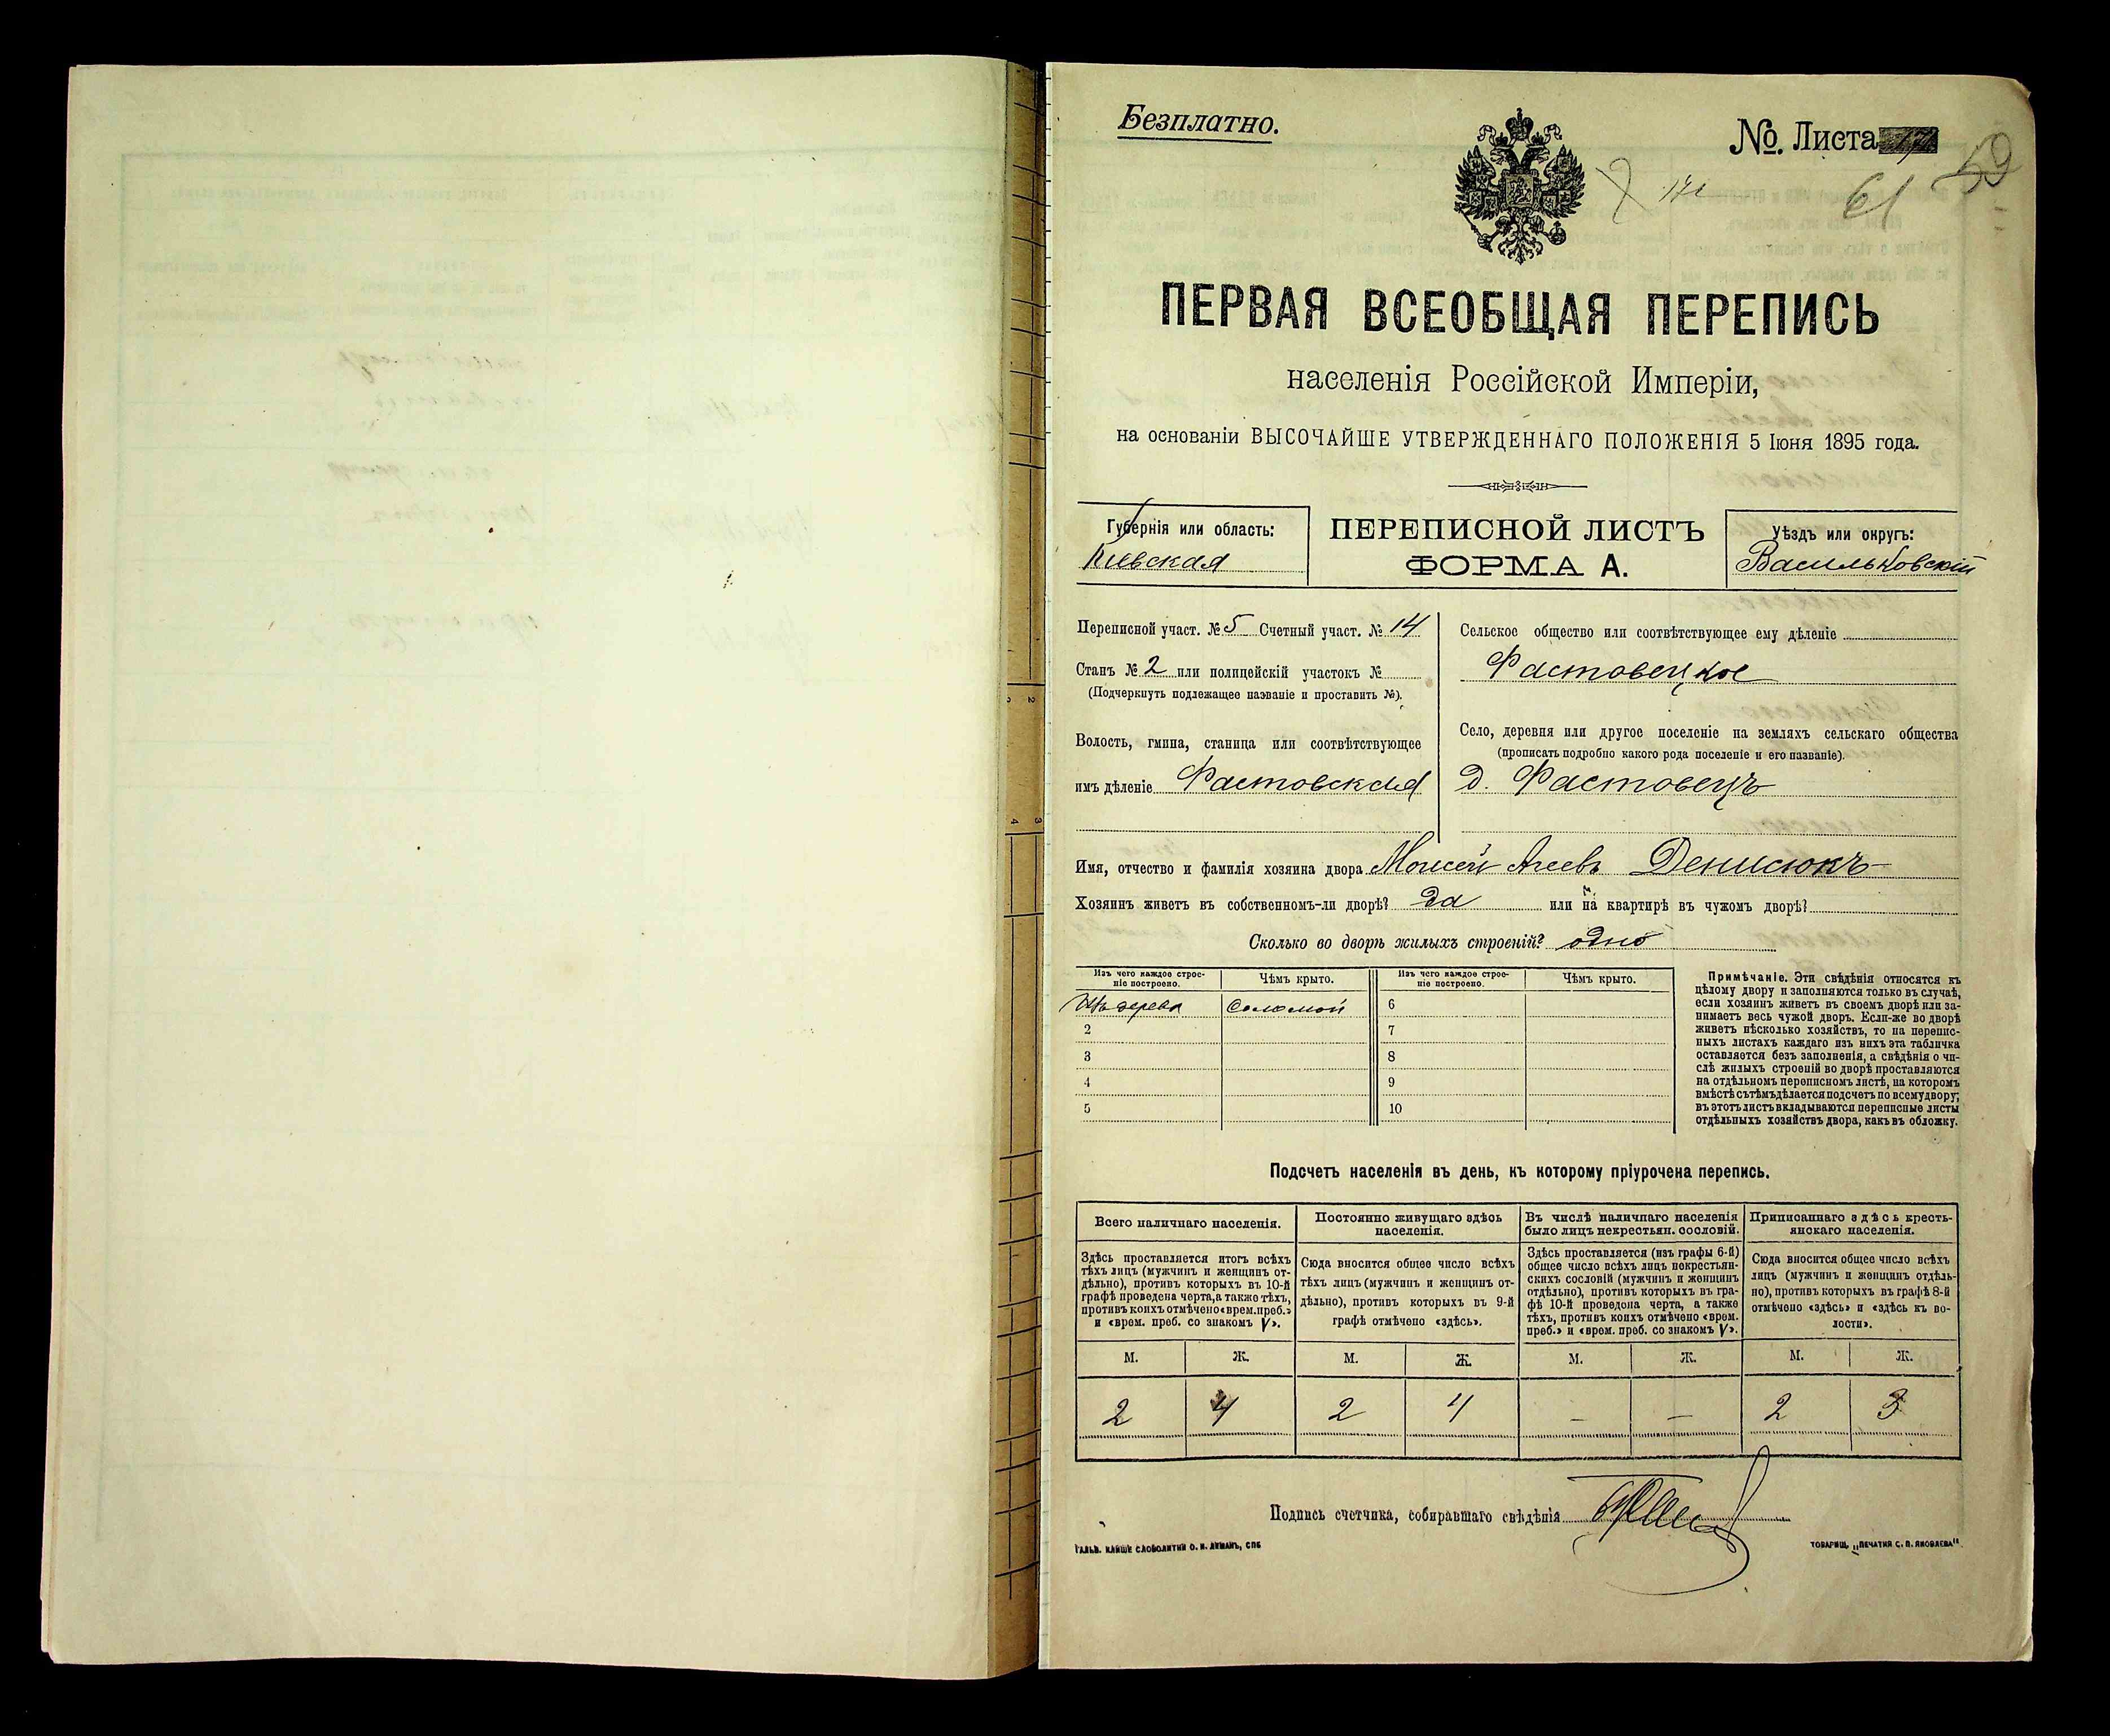 Безплатно.
№. Листа 171
171
61
59
ПЕРВАЯ ВСЕОБЩАЯ ПЕРЕПИСЬ
населенія Россійской Имперіи,
на основаніи ВЫСОЧАЙШЕ УТВЕРЖДЕННАГО ПОЛОЖЕНІЯ 5 Іюня 1895 года.
Губернія или область:
Кіевская
ПЕРЕПИСНОЙ ЛИСТЪ
ФОРМА А.
Уѣздъ или округъ:
Васильковскій
Переписной участ. № 5 Счетный участ. № 14
Станъ № 2 или полицейскій участокъ №
(Подчеркнуть подлежащее названіе и проставить №).
Волость, гмина, станица или соотвѣтствующее
имъ дѣленіе Фастовская
Сельское общество или соотвѣтствующее ему дѣленіе
Фастовецкое
Село, деревня или другое поселеніе на земляхъ сельскаго общества
(прописать подробно какого рода поселеніе и его названіе).
д. Фастовецъ
Имя, отчество и фамилія хозяина двора Моисей Агеевъ Денисюкъ
Хозяинъ живетъ въ собственномъ-ли дворѣ? Да или на квартирѣ въ чужомъ дворѣ?
Сколько во дворѣ жилыхъ строеній? одно
Изъ чего каждое строе-
ніе построено.
Чѣмъ крыто.
Изъ чего каждое строе-
ніе построено.
Чѣмъ крыто.
Изъ дерева Соломой 6
2 7
3 8
4 9
5 10
Примѣчаніе. Эти свѣдѣнія относятся къ
цѣлому двору и заполняются только въ случаѣ,
если хозяинъ живетъ въ своемъ дворѣ или за-
нимаетъ весь чужой дворъ. Если-же во дворѣ
живетъ нѣсколько хозяйствъ, то на перепис-
ныхъ листахъ каждаго изъ нихъ эта табличка
оставляется безъ заполненія, а свѣдѣнія о чи-
слѣ жилыхъ строеній во дворѣ проставляются
на отдѣльномъ переписномъ листѣ, на которомъ
вмѣстѣ съ тѣмъ дѣлается подсчетъ по всему двору;
въ этотъ листъ вкладываются переписные листы
отдѣльныхъ хозяйствъ двора, какъ въ обложку.
Подсчетъ населенія въ день, къ которому пріурочена перепись.
Всего наличнаго населенія.
Здѣсь проставляется итогъ всѣхъ
тѣхъ лицъ (мужчинъ и женщинъ от-
дѣльно), противъ которыхъ въ 10-й
графѣ проведена черта, а также тѣхъ,
противъ коихъ отмѣчено «врем. преб.»
и «врем. преб. со знакомъ V».
Постоянно живущаго здѣсь
населенія.
Сюда вносится общее число всѣхъ
тѣхъ лицъ (мужчинъ и женщинъ от-
дѣльно), противъ которыхъ въ 9-й
графѣ отмѣчено «здѣсь».
Въ числѣ наличнаго населенія
было лицъ некрестьян. сословій.
Здѣсь проставляется (изъ графы 6-й)
общее число всѣхъ лицъ некрестьян-
скихъ сословій (мужчинъ и женщинъ
отдѣльно), противъ которыхъ въ гра-
фѣ 10-й проведена черта, а также
тѣхъ, противъ коихъ отмѣчено «врем.
преб.» и «врем. преб. со знакомъ V».
Приписаннаго здѣсь кресть-
янскаго населенія.
Сюда вносится общее число всѣхъ
лицъ (мужчинъ и женщинъ отдѣль-
но), противъ которыхъ въ графѣ 8-й
отмѣчено «здѣсь» и «здѣсь къ во-
лости».
М. Ж. М. Ж. М. Ж. М. Ж.
2 4 2 4 – – 2 3
Подпись счетчика, собиравшаго свѣдѣнія
ГАЛЬВ. КЛИШЕ СЛОВОЛИТНИ О. И. ЛЕМАНЪ, СПБ
ТОВАРИЩ. „ПЕЧАТНЯ С. П. ЯКОВЛЕВА"